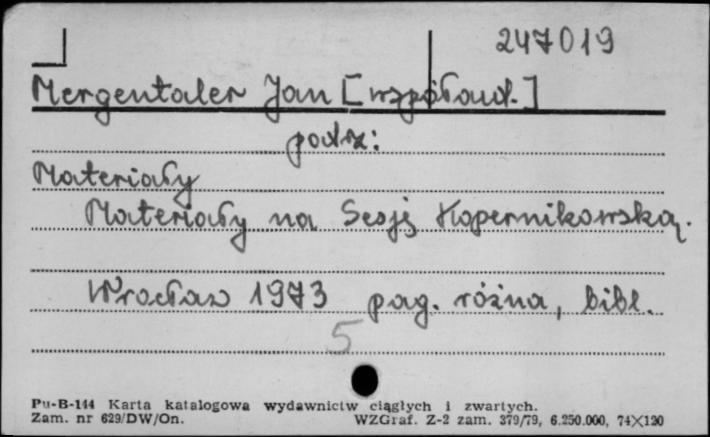 247019
Mergentaler Jan [współaut.]
patrz:
Materiały
Materiały na Sesję Kopernikowską.
Wrocław 1973 pag. różna, bibl.
5
Pu-B-144 Karta katalogowa wydawnictw ciągłych i zwartych.
Zam. nr 629/DW/On. WZGraf. Z-2 zam. 379/79, 6.250.000, 74X120